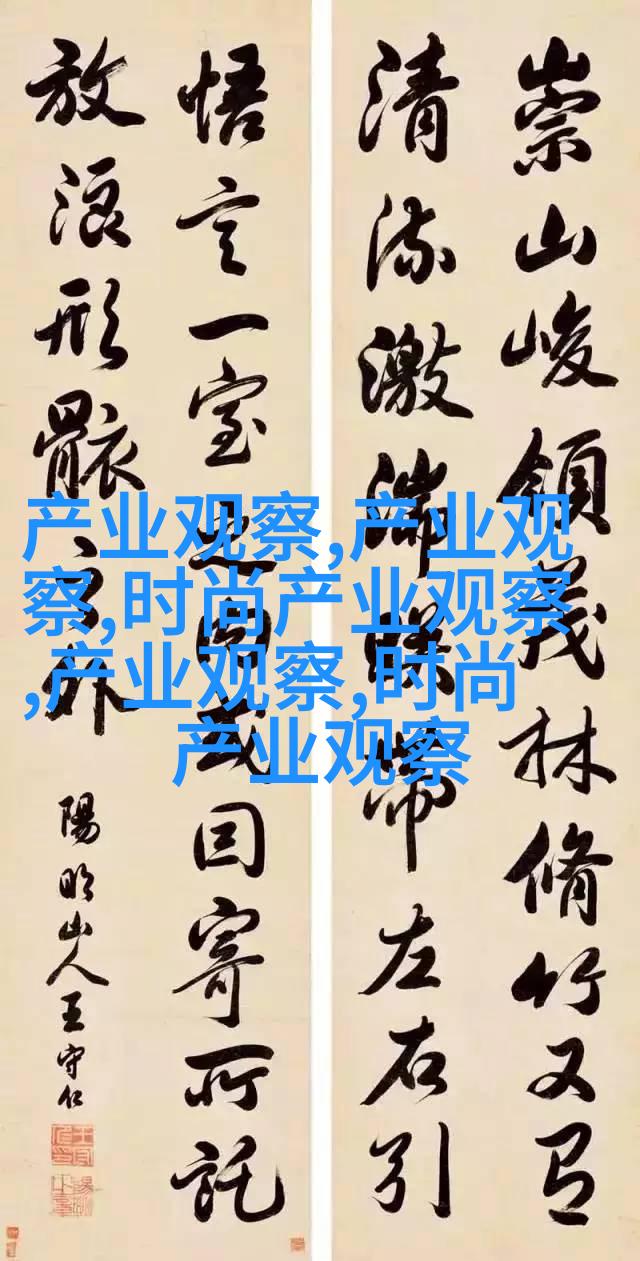 崇山峻領茂林脩竹又有
清流激湍暎帶左右引
悟言一室之内或因寄所託
放浪形骸之外
陽明山人王守仁
产业观察,产业观
察,时尚产业观察
,产业观察,时尚
产业观察